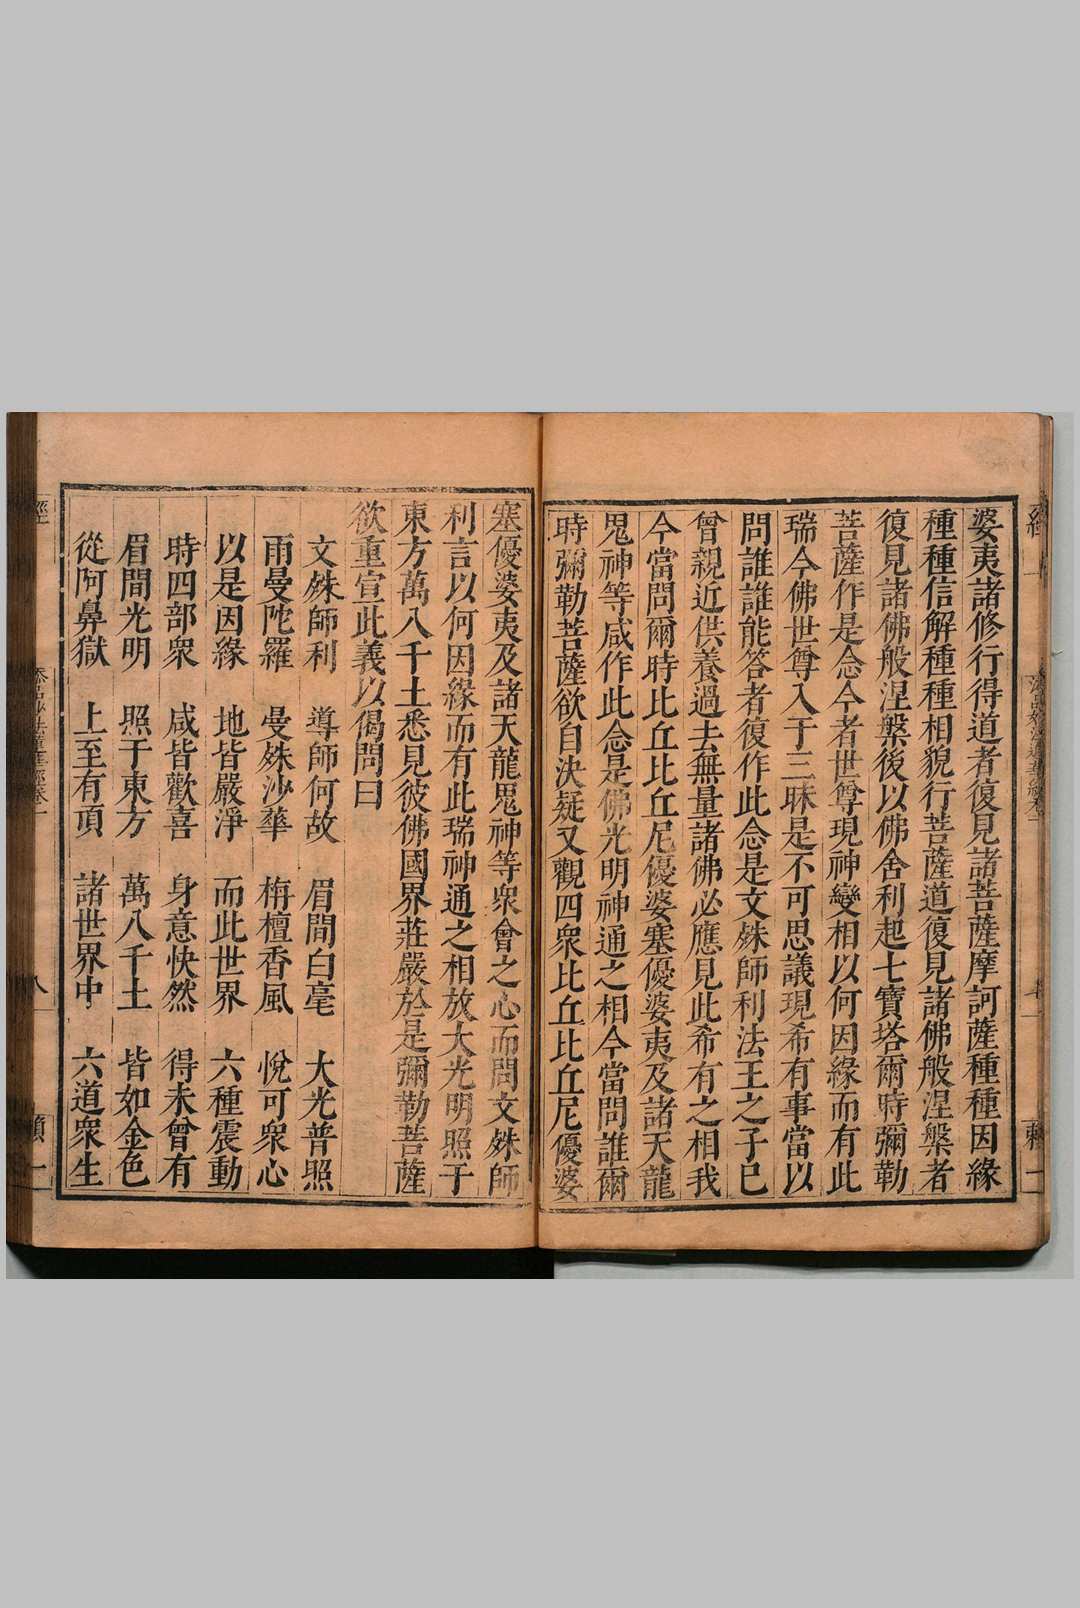 婆夷諸修行得道者復見諸菩薩摩訶薩種種因緣
種種信解種種相貌行菩薩道復見諸佛般涅槃者
復見諸佛般涅槃後以佛舍利起七寶塔爾時彌勒
菩薩作是念今者世尊現神變相以何因緣而有此
瑞今佛世尊入于三昧是不可思議現希有事當以
問誰誰能答者復作此念是文殊師利法王之子已
曾親近供養過去無量諸佛必應見此希有之相我
今當問爾時比丘比丘尼優婆塞優婆夷及諸天龍
鬼神等咸作此念是佛光明神通之相今當問誰爾
時彌勒菩薩欲自決疑又觀四衆比丘比丘尼優婆
塞優婆夷及諸天龍鬼神等衆會之心而問文殊師
利言以何因緣而有此瑞神通之相放大光明照于
東方萬八千土悉見彼佛國界莊嚴於是彌勒菩薩
欲重宣此義以偈問曰
文殊師利 導師何故 眉間白毫 大光普照
雨曼陀羅 曼殊沙華 栴檀香風 悅可衆心
以是因緣 地皆嚴淨 而此世界 六種震動
時四部衆 咸皆歡喜 身意快然 得未曾有
眉間光明 照于東方 萬八千土 皆如金色
從阿鼻獄 上至有頂 諸世界中 六道衆生